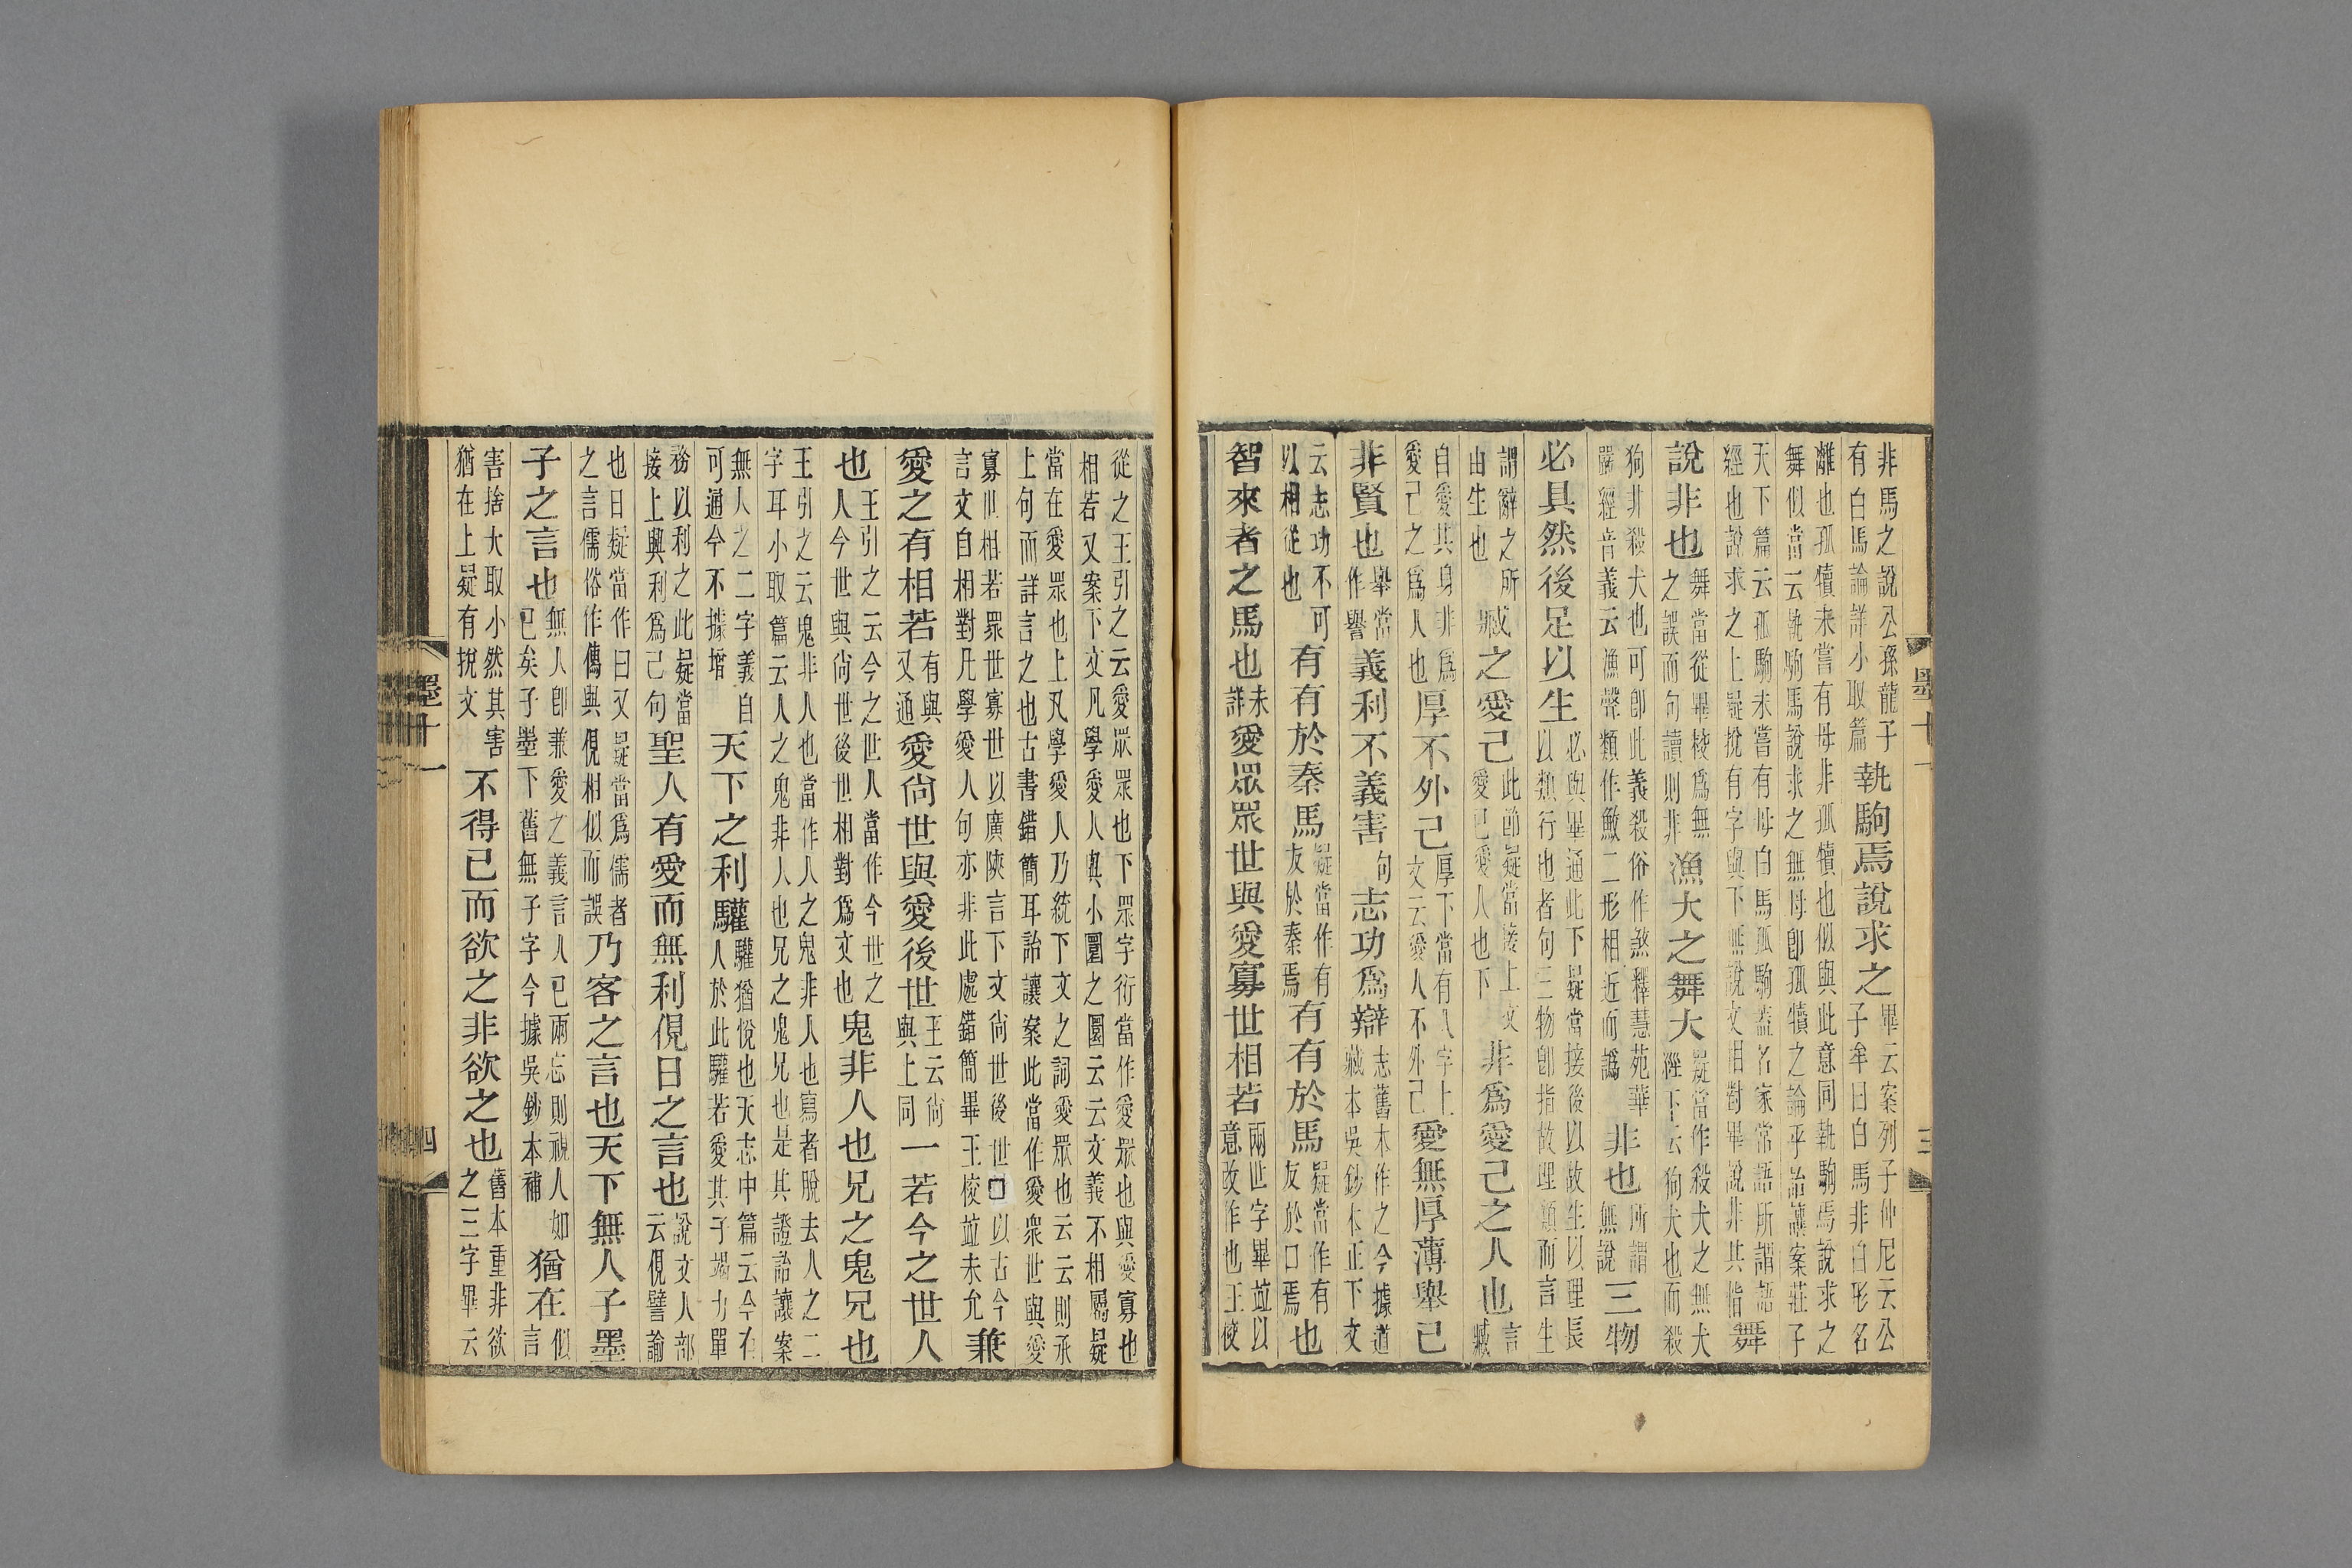 非馬之說公孫龍子有白馬論詳小取篇執駒焉說求之畢云案列子仲尼云公子牟曰白馬非白形名
離也孤犢未嘗有母非孤犢也似與此意同執駒焉說求之舞似當云執駒馬說求之無母卽孤犢之論乎詒讓案莊子
天下篇云孤駒未嘗有母白馬孤駒蓋名家常語所謂語經也說求之上疑挩有字與下無說文相對畢說非其恉舞
說非也舞當從畢校爲無之誤而句讀則非漁大之舞大疑當作殺犬之無犬經下云狗犬也而殺
狗非殺犬也可卽此義殺俗作煞釋慧苑華嚴經音義云漁聲類作𩼪二形相近而譌非也所謂無說三物
必具然後足以生必與畢通此下疑當接後以故生以理長以類行也者句三物卽指故理類而言生
謂辭之所由生也臧之愛己此節疑當接上文愛己愛人也下非爲愛己之人也言臧
自愛其身非爲愛己之爲人也厚不外己厚下當有人字上文云愛人不外己愛無厚薄舉己
非賢也舉當作譽義利不義害句志功爲辯志舊本作之今據道藏本吳鈔本正下文
云志功不可以相從也有有於秦馬疑當作有友於秦焉有有於馬疑當作有友於口焉也
智來者之馬也未詳愛眾眾世與愛寡世相若兩世字畢竝以意改作也王校
墨十一
三
從之王引之云愛眾眾也下眾字衍當作愛眾也與愛寡也相若又案下文凡學愛人與小圜之圜云云文義不相屬疑
當在愛眾也上凡學愛人乃統下文之詞愛眾也云云則承上句而詳言之也古書錯簡耳詒讓案此當作愛眾世與愛
寡世相若眾世寡世以廣陝言下文尙世後世□以古今言文自相對凡學愛人句亦非此處錯簡畢王校竝未允兼
愛之有相若有與又通愛尙世與愛後世王云尙與上同一若今之世人
也王引之云今之世人當作今世之人今世與尙世後世相對爲文也鬼非人也兄之鬼兄也
王引之云鬼非人也當作人之鬼非人也寫者脫去人之二字耳小取篇云人之鬼非人也兄之鬼兄也是其證詒讓案
無人之二字義自可通今不據增天下之利驩驩猶悅也天志中篇云今有人於此驩若愛其子竭力單
務以利之此疑當接上興利爲己句聖人有愛而無利俔日之言也說文人部云俔譬諭
也日疑當作曰又疑當爲儒者之言儒俗作傳與俔相似而誤乃客之言也天下無人子墨
子之言也無人卽兼愛之義言人己兩忘則視人如己矣子墨下舊無子字今據吳鈔本補猶在似言
害捨大取小然其害猶在上疑有挩文不得已而欲之非欲之也舊本重非欲之三字畢云
墨十一
四